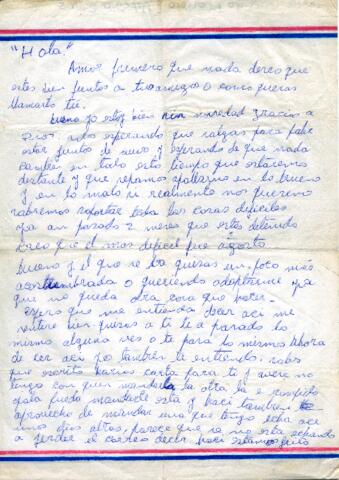 "Hola"
Amor primero que nada deceo que
estes bien juntos a tu amigo o como quieras
llamarlo tu.
bueno yo estoy bien sin novedad gracias a
Dios. solo esperando que salgas para poder
estar juntos de nuevo y esperando de que nada
cambie en todo este tiempo que estaremos
distante y que sepamos apollarnos en lo bueno
y en lo malo si realmente nos queremos
sabremos soportar todas las cosas dificiles
ya an pasado 2 meses que estes detenido
creo que el mas dificil fue agosto
bueno y el que se ba quisas un poco más
acostumbrada o queriendo adaptarme ya
que no queda otra cosa que hacer.
espero que me entienda decar aci me
sentire bien. quisas a ti te a parado lo
mismo alguna ves o te para lo mismo ahora
de ser aci yo tambien te entiendo. sabes
que escrito barias carta para ti y avere no
tengo con quien mandarla la otra la e rompido
para puedo mandarte esta y haci tambien
aprovecho de mandar una que tengo echa ace
unos dias atras, parece que se me esta echando
a perder el correo decar haci estamos frito